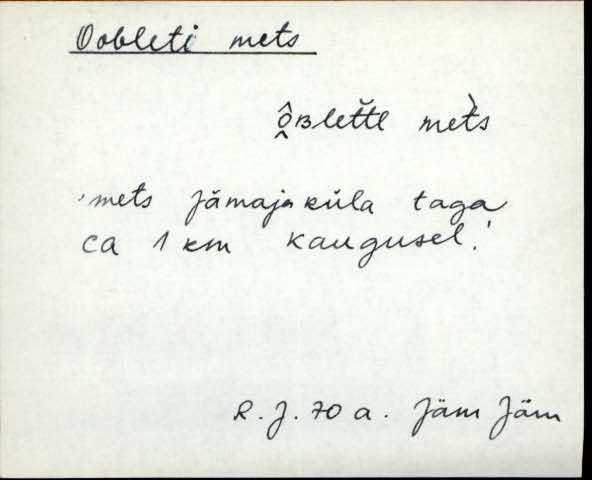 Oobleti mets
ô̭ʙlet̆t̆l met̀s
'mets Jämaja küla taga
ca 1 km kaugusel.'
R. J. 70 a. Jäm Jäm